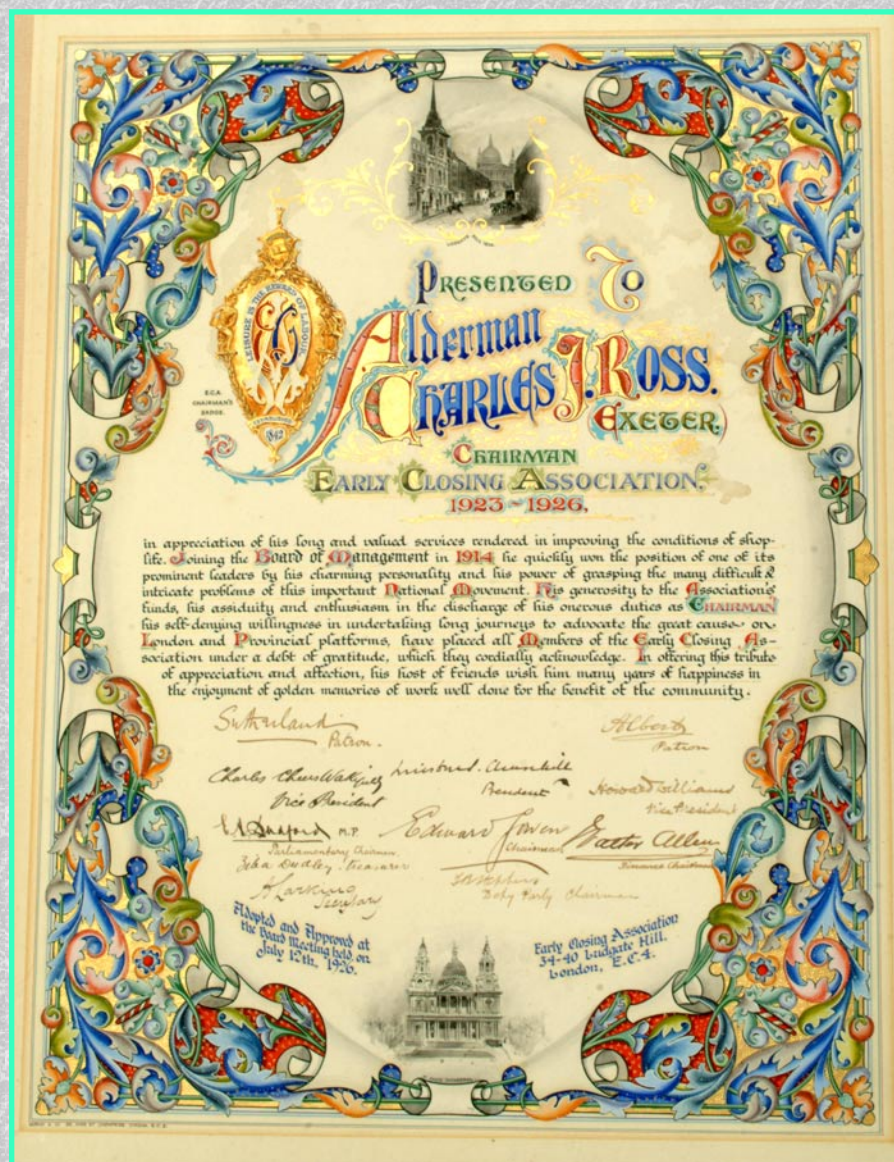 PRESENTED TO
LEISURE IS THE REWARD OF LABOUR
Alderman
CHARLES J. ROSS.
E.C.A.
CHAIRMAN'S
BADGE.
(EXETER)
1842
CHAIRMAN
EARLY CLOSING ASSOCIATION,
1923~1926,
in appreciation of his long and valued services rendered in improving the conditions of shop-
life. Joining the Board of Management in 1914 he quickly won the position of one of its
prominent leaders by his charming personality and his power of grasping the many difficult &
intricate problems of this important National Movement. His generosity to the Association's
funds, his assiduity and enthusiasm in the discharge of his onerous duties as CHAIRMAN
his self-denying willingness in undertaking long journeys to advocate the great cause on
London and Provincial platforms, have placed all Members of the Early Closing As-
sociation under a debt of gratitude, which they cordially acknowledge. In offering this tribute
of appreciation and affection, his host of friends wish him many years of happiness in
the enjoyment of golden memories of work well done for the benefit of the community.
Sutherland
Patron.
Albert
Patron
Charles Cheers Wakefield
Vice President
Winston S. Churchill
President
Howard Williams
Vice President
M.P.
Parliamentary Chairman
Edward Gowen
Chairman
Walter Allen
Finance Chairman
Dudley. Treasurer
A Larking
Secretary
Depy Parly Chairman
Adopted and Approved at
the Board Meeting held on
July 12th, 1926.
Early Closing Association
34-40 Ludgate Hill.
London, E.C.4.